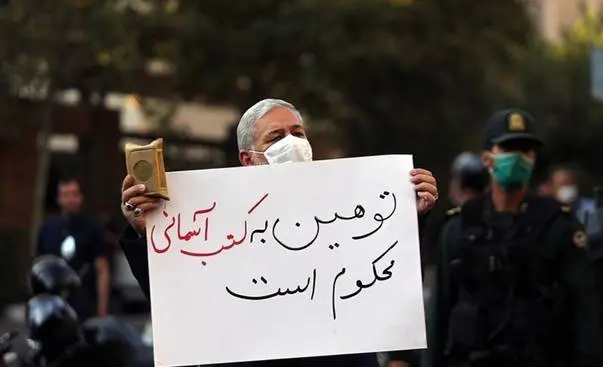 توهین به کتب آسمانی
محکوم است